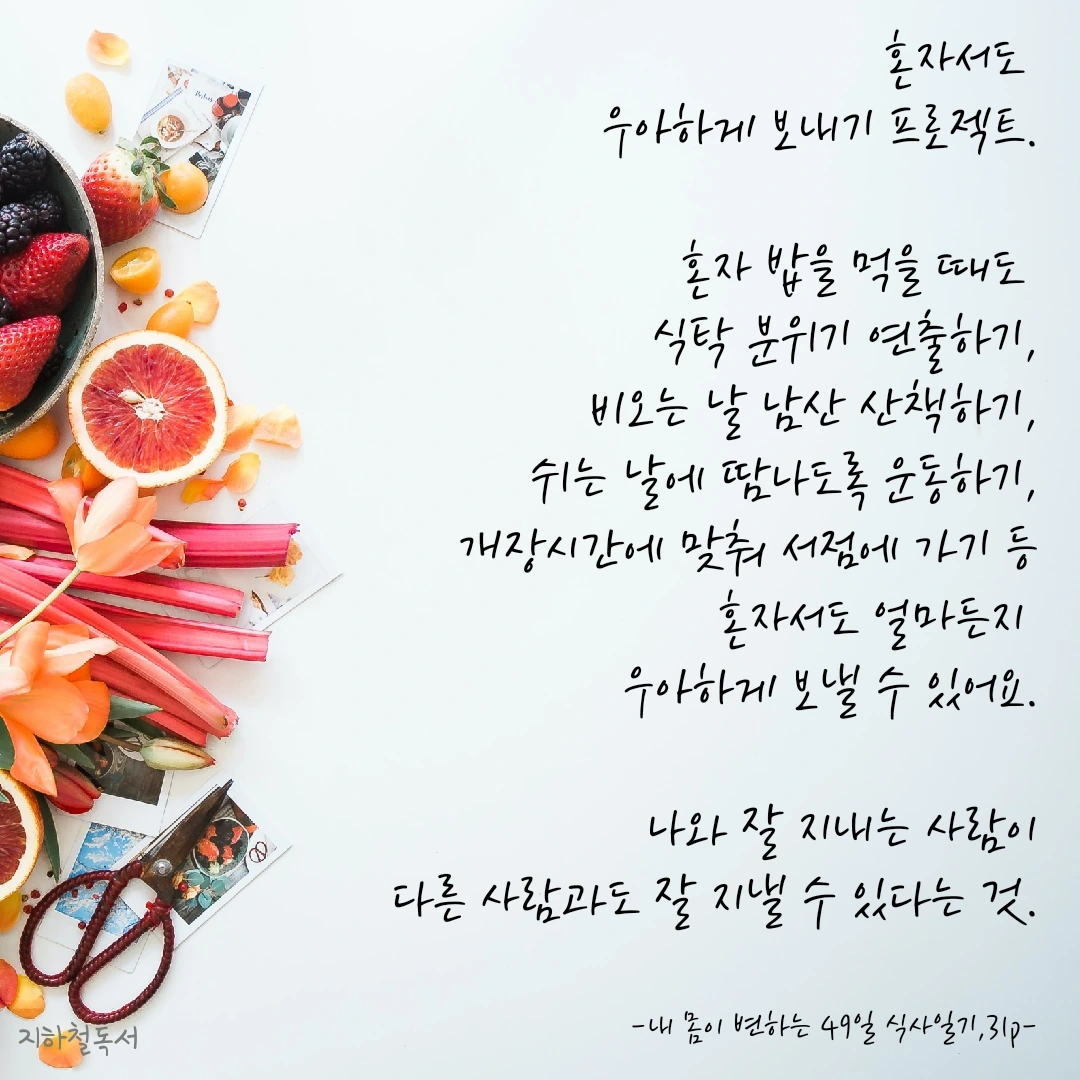 혼자서도
우아하게 보내기 프로젝트.
혼자 밥을 먹을 때도
식탁 분위기 연출하기,
비오는 날 남산 산책하기,
쉬는 날에 땀나도록 운동하기,
개장시간에 맞춰 서점에 가기 등
혼자서도 얼마든지
우아하게 보낼 수 있어요.
나와 잘 지내는 사람이
다른 사람과도 잘 지낼 수 있다는 것.
-내 몸이 변하는 49일 식사일기,31p-
지하철독서